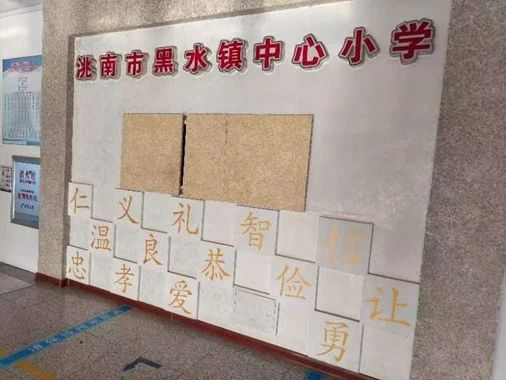 洮南市黑水镇中心小学
仁 义 礼 智 信
温 良 恭 俭 让
忠 孝 爱 勇